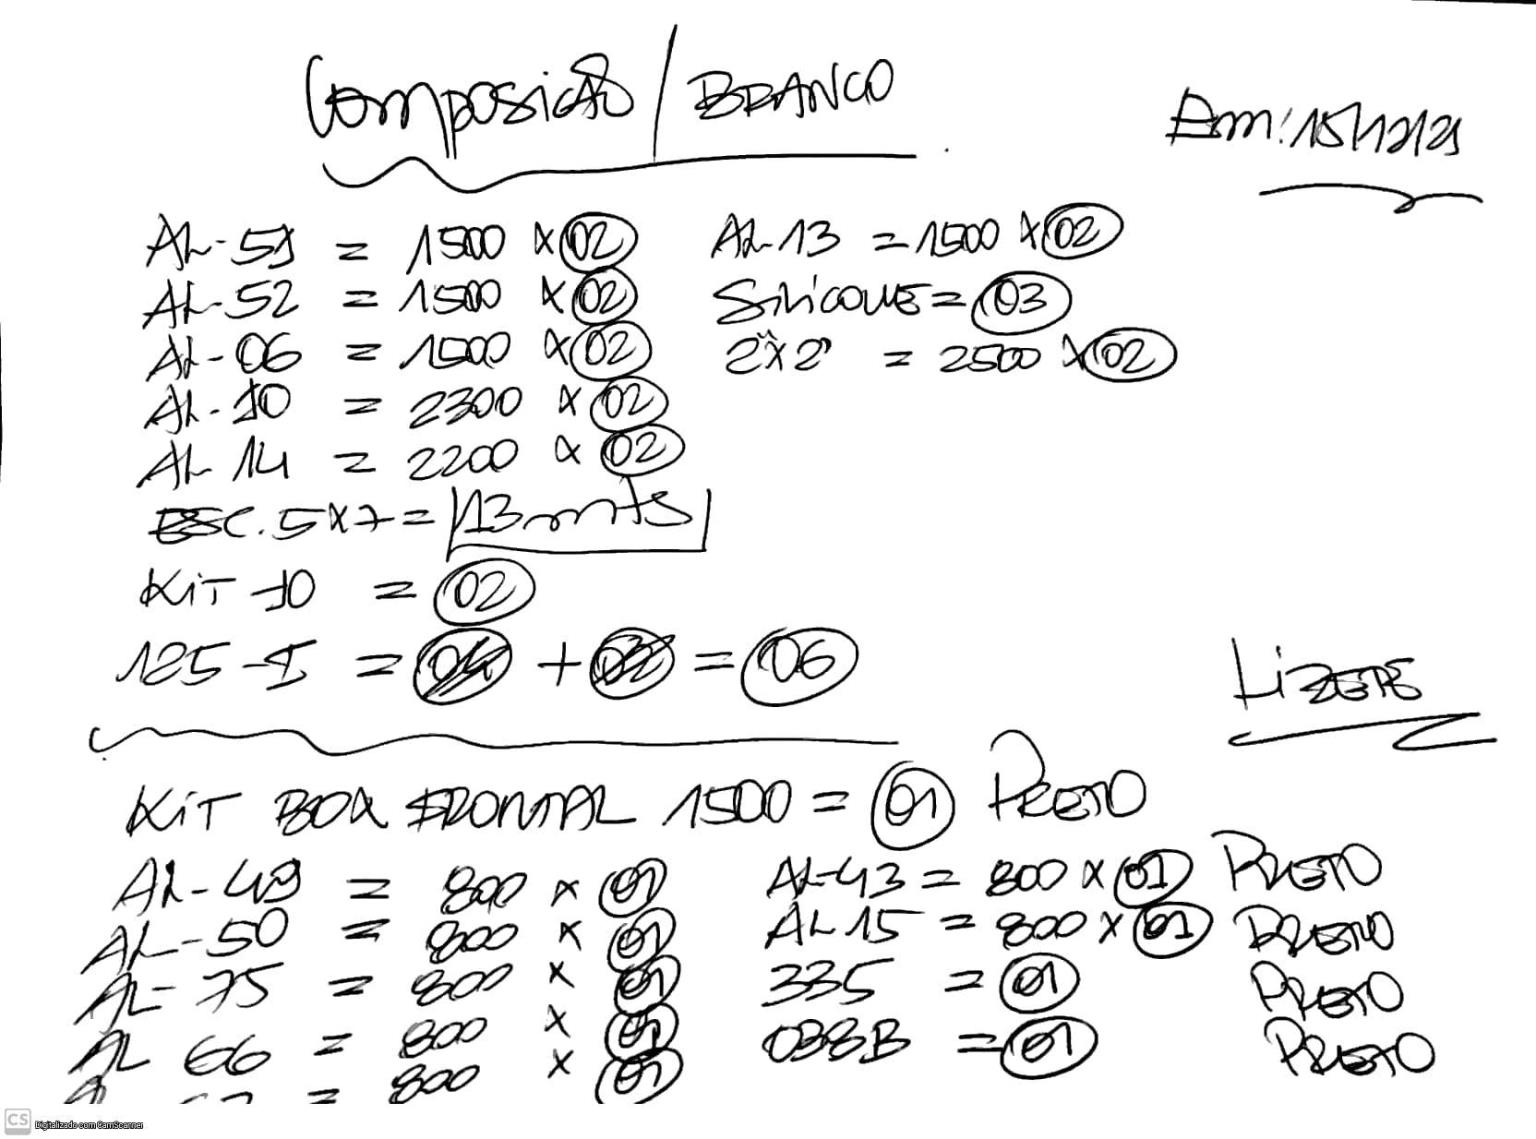 Composição / BRANCO
Em: 15/12/21
AL-51 = 1500 x 02
AL-52 = 1500 x 02
AL-06 = 1500 x 02
AL-10 = 2300 x 02
AL 14 = 2200 x 02
ESC. 5x7 = 13 mts
KiT 10 = 02
125-I = 04 + 02 = 06
AL-13 = 1500 x 02
SiLiCONE = 03
2"x2" = 2500 x 02
LiZETE
KiT BOX FRONTAL 1500 = 01 PRETO
AL-49 = 800 x 01
AL-50 = 800 x 01
AL-75 = 800 x 01
AL 66 = 800 x 01
= 800 x 01
AL-43 = 800 x 01 PRETO
AL 15 = 800 x 01 PRETO
335 = 01 PRETO
038B = 01 PRETO
CS Digitalizado com CamScanner